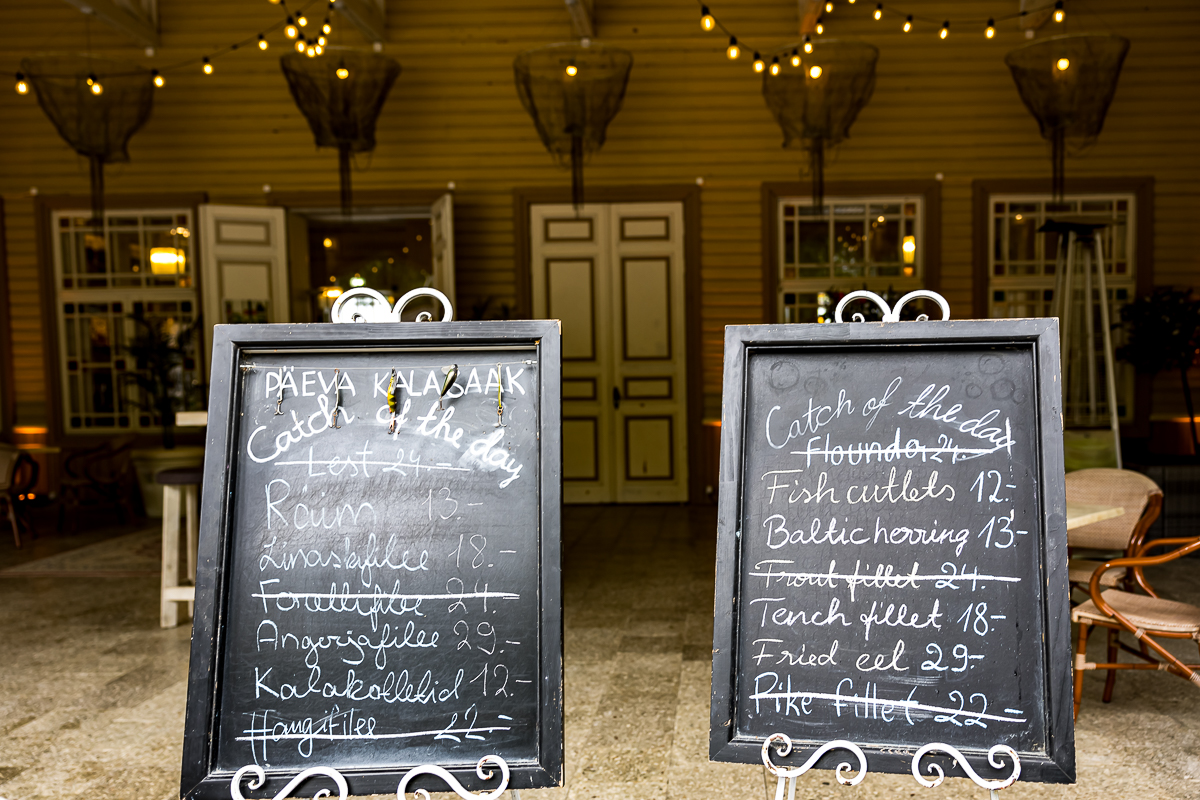 PÄEVA KALASAAK
Catch of the day
Lest 24.-
Räim 13.-
Linaskifilee 18.-
Forellifilee 24.-
Angerjafilee 29.-
Kalakotletid 12.-
Haugifilee 22.-
Catch of the day
Flounder 24.-
Fish cutlets 12.-
Baltic herring 13.-
Trout fillet 24.-
Tench fillet 18.-
Fried eel 29.-
Pike fillet 22.-